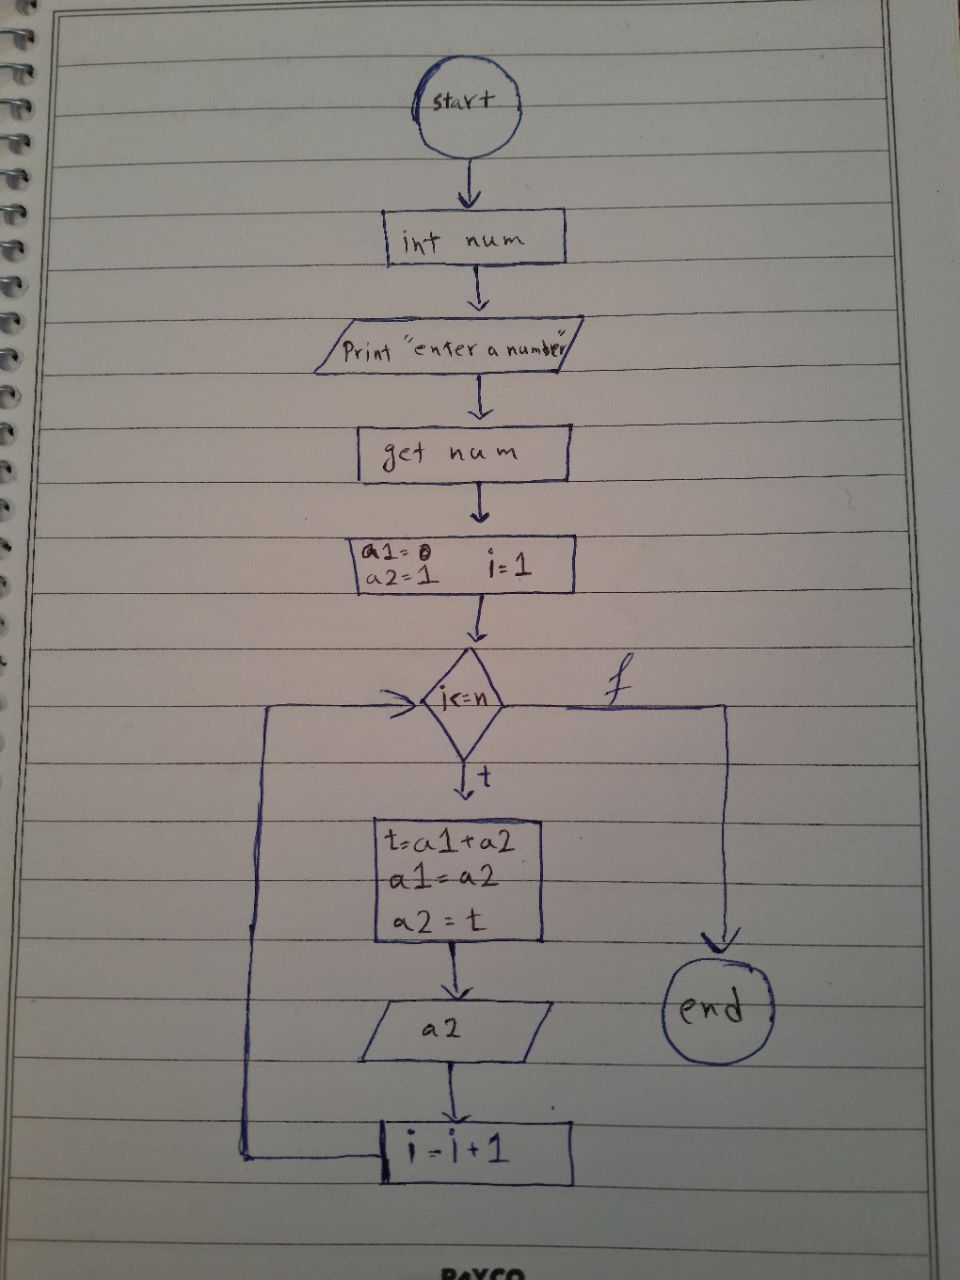 start
int num
Print "enter a number"
get num
a1=0
a2=1 i=1
i<=n
f
t
t=a1+a2
a1=a2
a2=t
a2
end
i=i+1